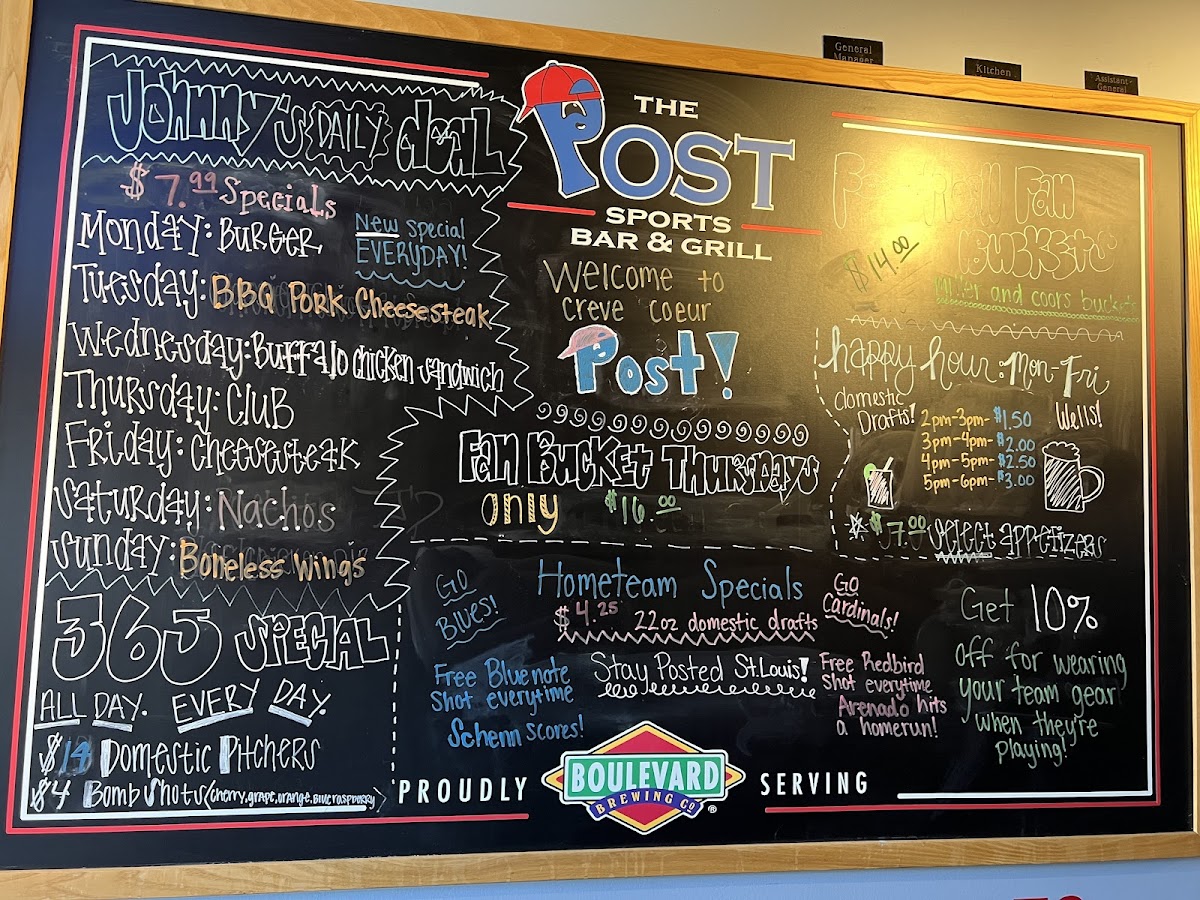 General
Manager
Kitchen
Assistant-
General
Johnny's DAILY deal
$7.99 Specials
New special
EVERYDAY!
Monday: BURGER
Tuesday: BBQ Pork Cheesesteak
Wednesday: Buffalo chicken sandwich
Thursday: CLUB
Friday: Cheesesteak
Saturday: Nachos
Sunday: Boneless Wings
365 SPECIAL
ALL DAY. EVERY DAY.
$14 Domestic Pitchers
$4 Bomb Shots (cherry, grape, orange, blue raspberry)
THE
POST
SPORTS
BAR & GRILL
Welcome to
creve coeur
Post!
Fan Bucket Thursdays
only $16.00
Football Fan
Buckets
$14.00
Miller and coors buckets
happy hour: Mon-Fri
domestic
Drafts!
2pm-3pm-$1.50
3pm-4pm-$2.00
4pm-5pm-$2.50
5pm-6pm-$3.00
Wells!
select appetizers
Hometeam Specials
$4.25 22oz domestic drafts
GO
BLUES!
GO
Cardinals!
Stay Posted St. Louis!
Free Bluenote
shot everytime
Schenn scores!
Free Redbird
shot everytime
Arenado hits
a homerun!
Get 10%
off for wearing
your team gear
when they're
playing!
PROUDLY
BOULEVARD
BREWING CO
®
SERVING